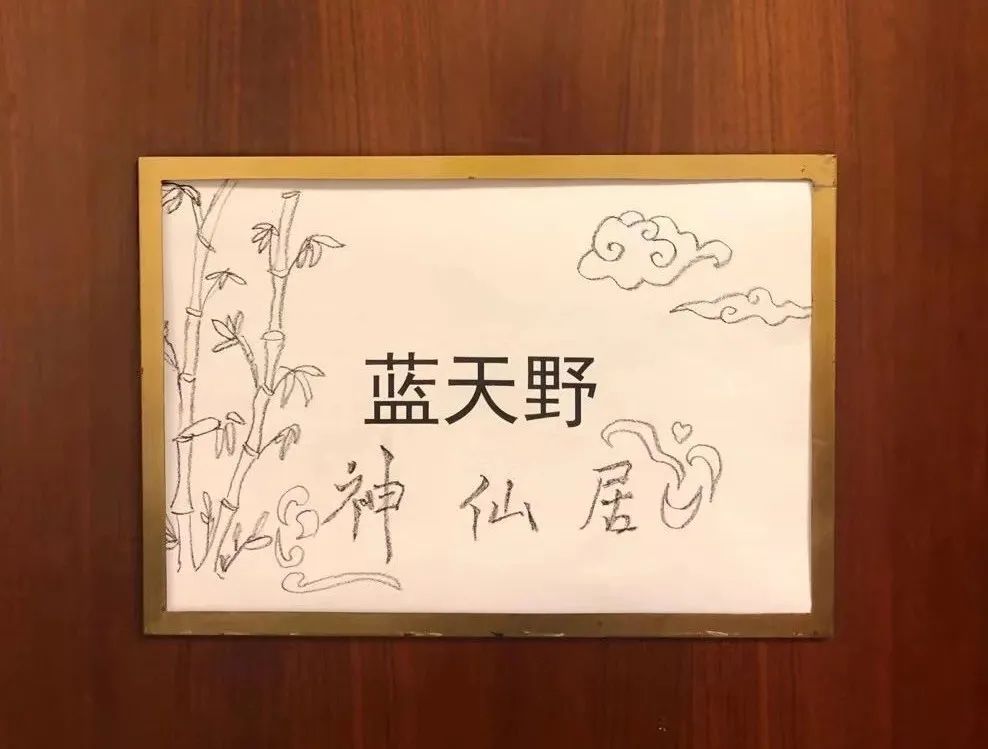 蓝天野
神仙居